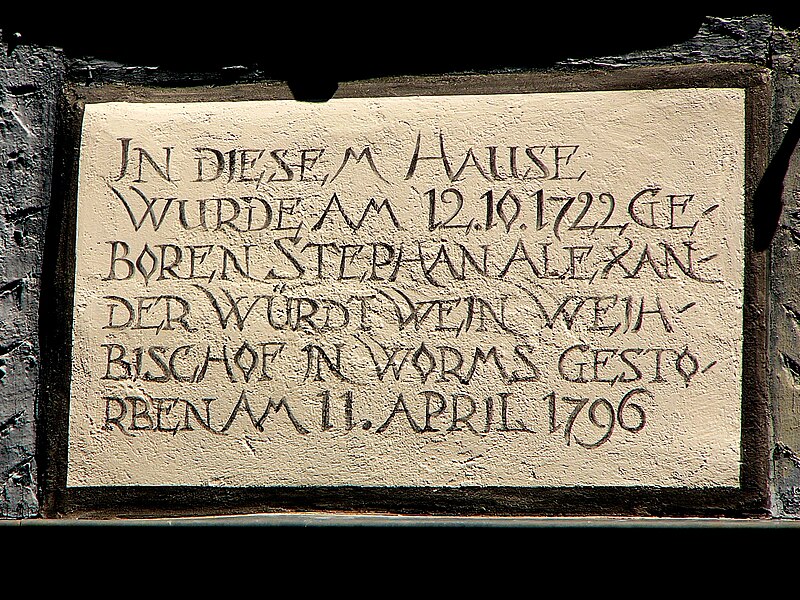 IN DIESEM HAUSE
WURDE AM 12.10.1722 GE-
BOREN STEPHAN ALEXAN-
DER WÜRDTWEIN WEIH-
BISCHOF IN WORMS GESTO-
RBEN AM 11. APRIL 1796